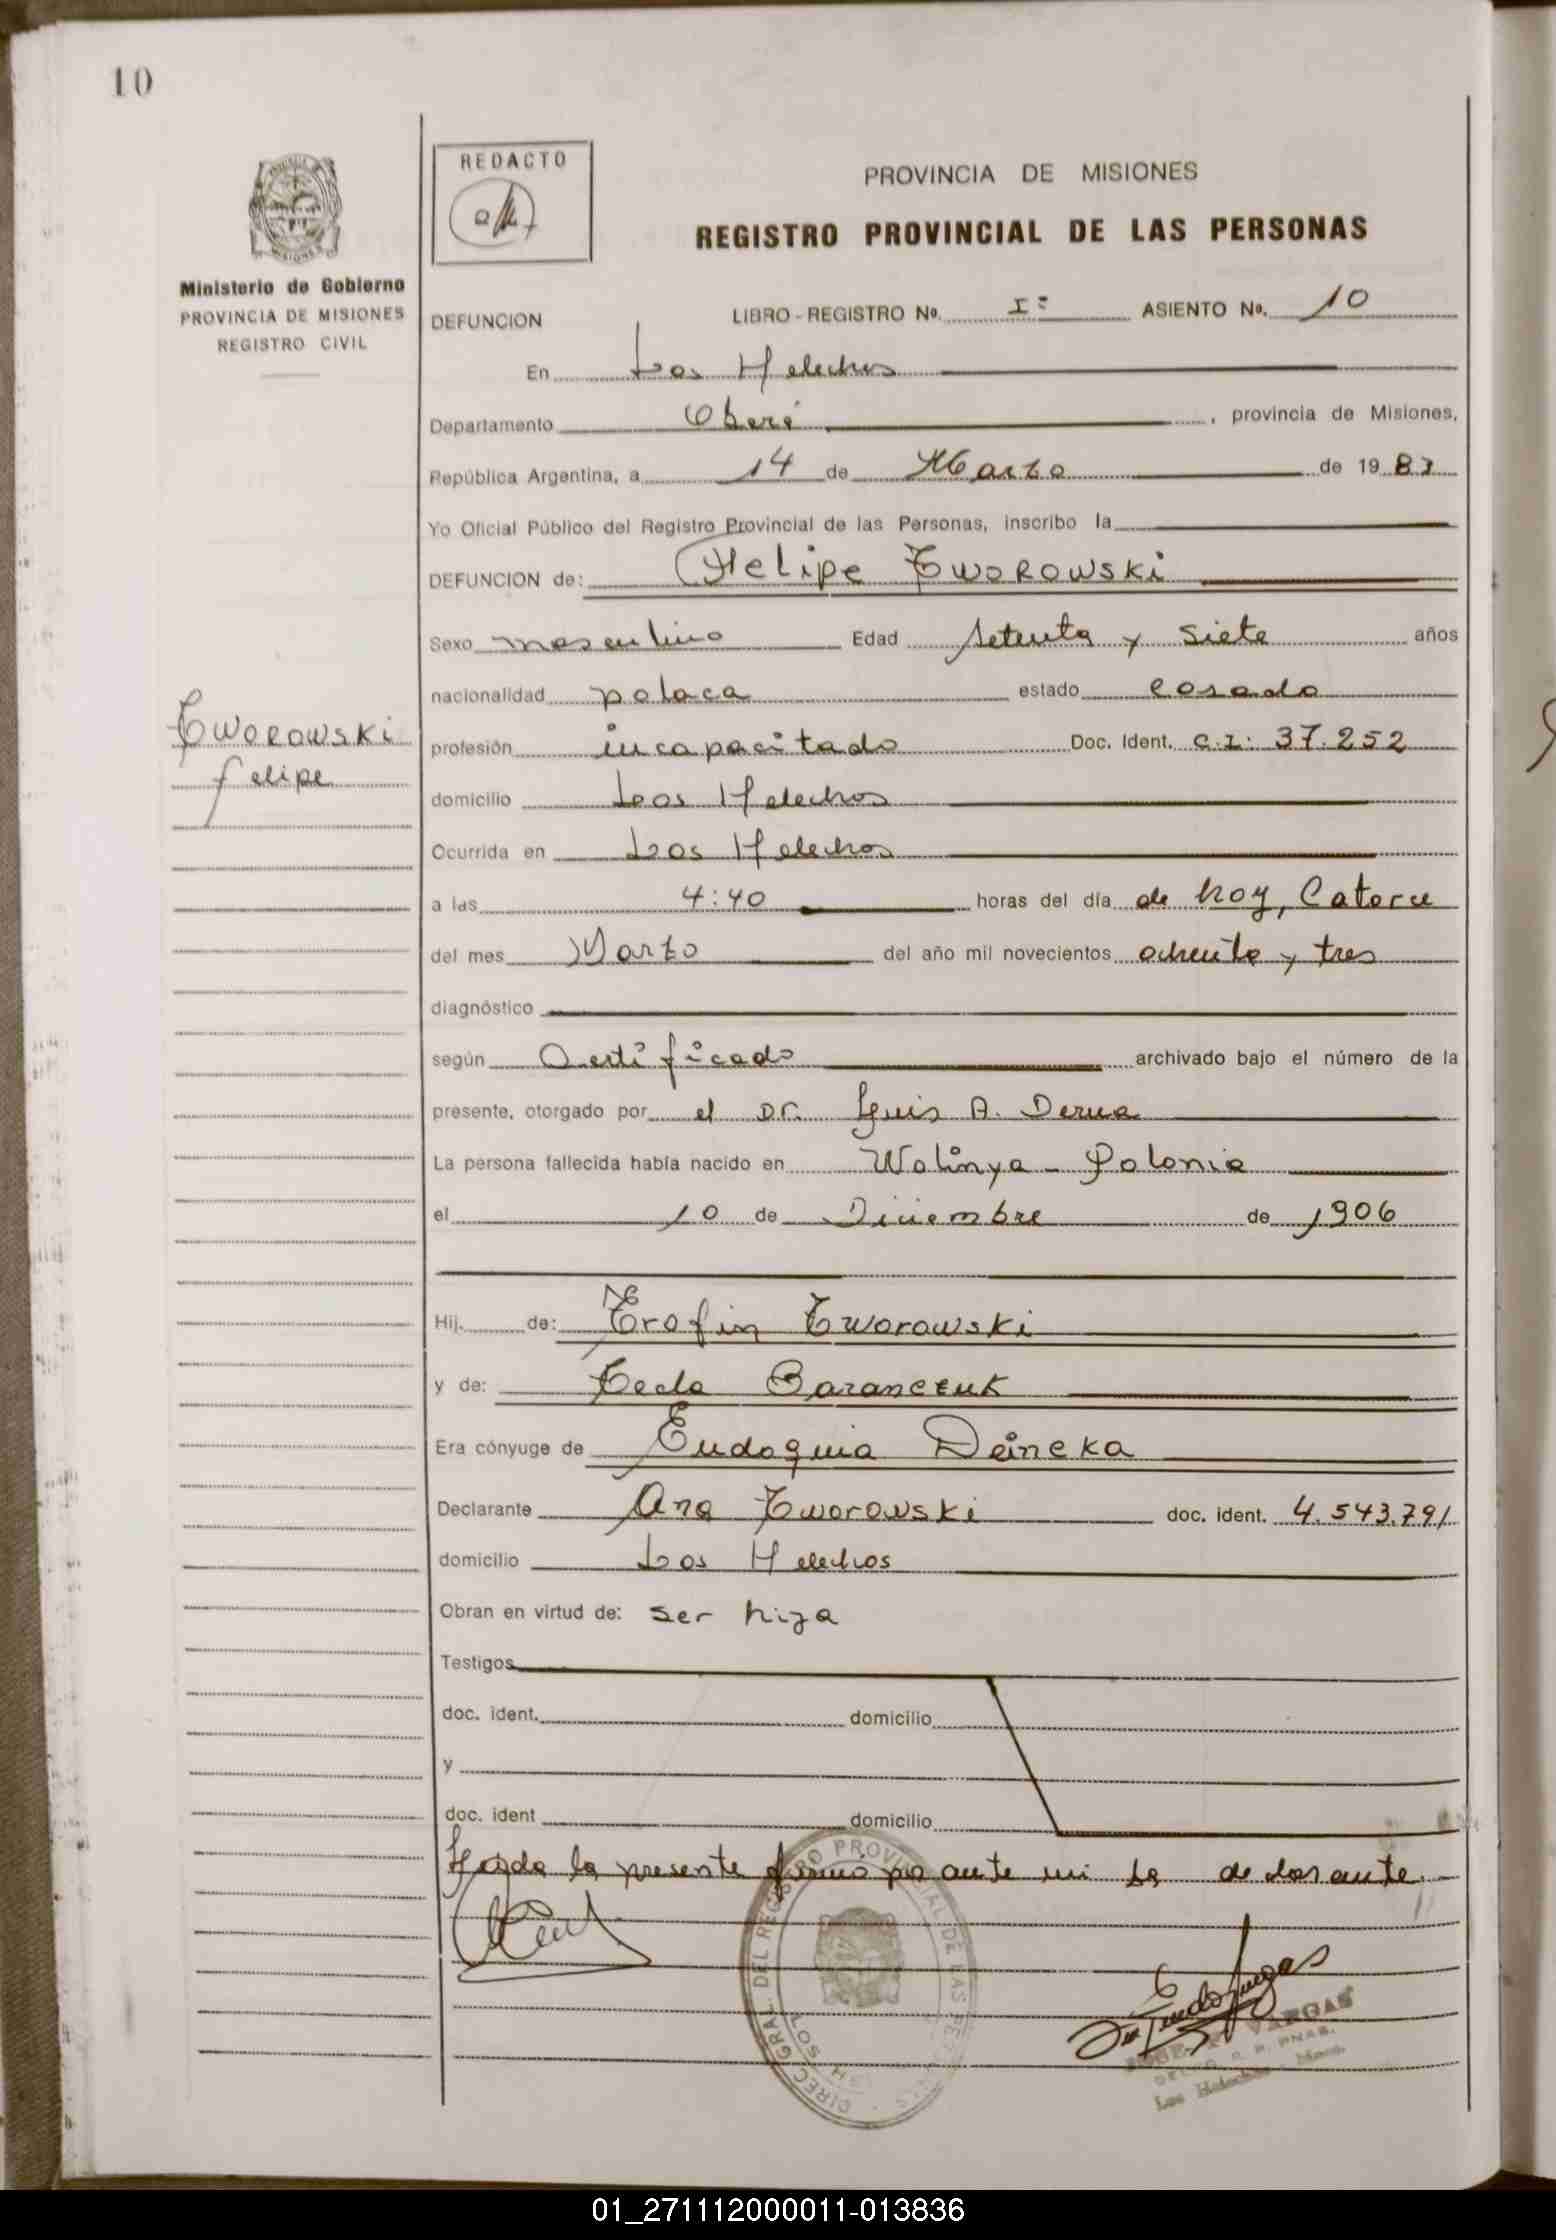 10
REDACTO
PROVINCIA DE MISIONES
REGISTRO PROVINCIAL DE LAS PERSONAS
Ministerio de Gobierno
PROVINCIA DE MISIONES
REGISTRO CIVIL
DEFUNCION LIBRO - REGISTRO No. Iº ASIENTO No. 10
En Los Helechos
Departamento Oberá, provincia de Misiones,
República Argentina, a 14 de Marzo de 1983
Yo Oficial Público del Registro Provincial de las Personas, inscribo la
DEFUNCION de: Felipe Tworowski
Sexo masculino Edad setenta y siete años
nacionalidad polaca estado casado
Tworowski
Felipe
profesión incapacitado Doc. Ident. C.I. 37.252
domicilio Los Helechos
Ocurrida en Los Helechos
a las 4:40 horas del día de hoy, Catorce
del mes Marzo del año mil novecientos ochenta y tres
diagnóstico
según Certificado archivado bajo el número de la
presente, otorgado por el Dr. Luis A. Derna
La persona fallecida había nacido en Wolinya - Polonia
el 10 de Diciembre de 1906
Hij. de: Trofin Tworowski
y de: Tecla Baranczuk
Era cónyuge de Eudoquia Deineka
Declarante Ana Tworowski doc. ident. 4.543.791
domicilio Los Helechos
Obran en virtud de: ser hija
Testigos
doc. ident. domicilio
y
doc. ident domicilio
Leída la presente firmó por ante mi la declarante.
DIREC. GRAL. DEL REGISTRO PROVINCIAL DE LAS
LOS HEL
JOSE VARGAS
Los Helechos - Mnes.
01_271112000011-013836